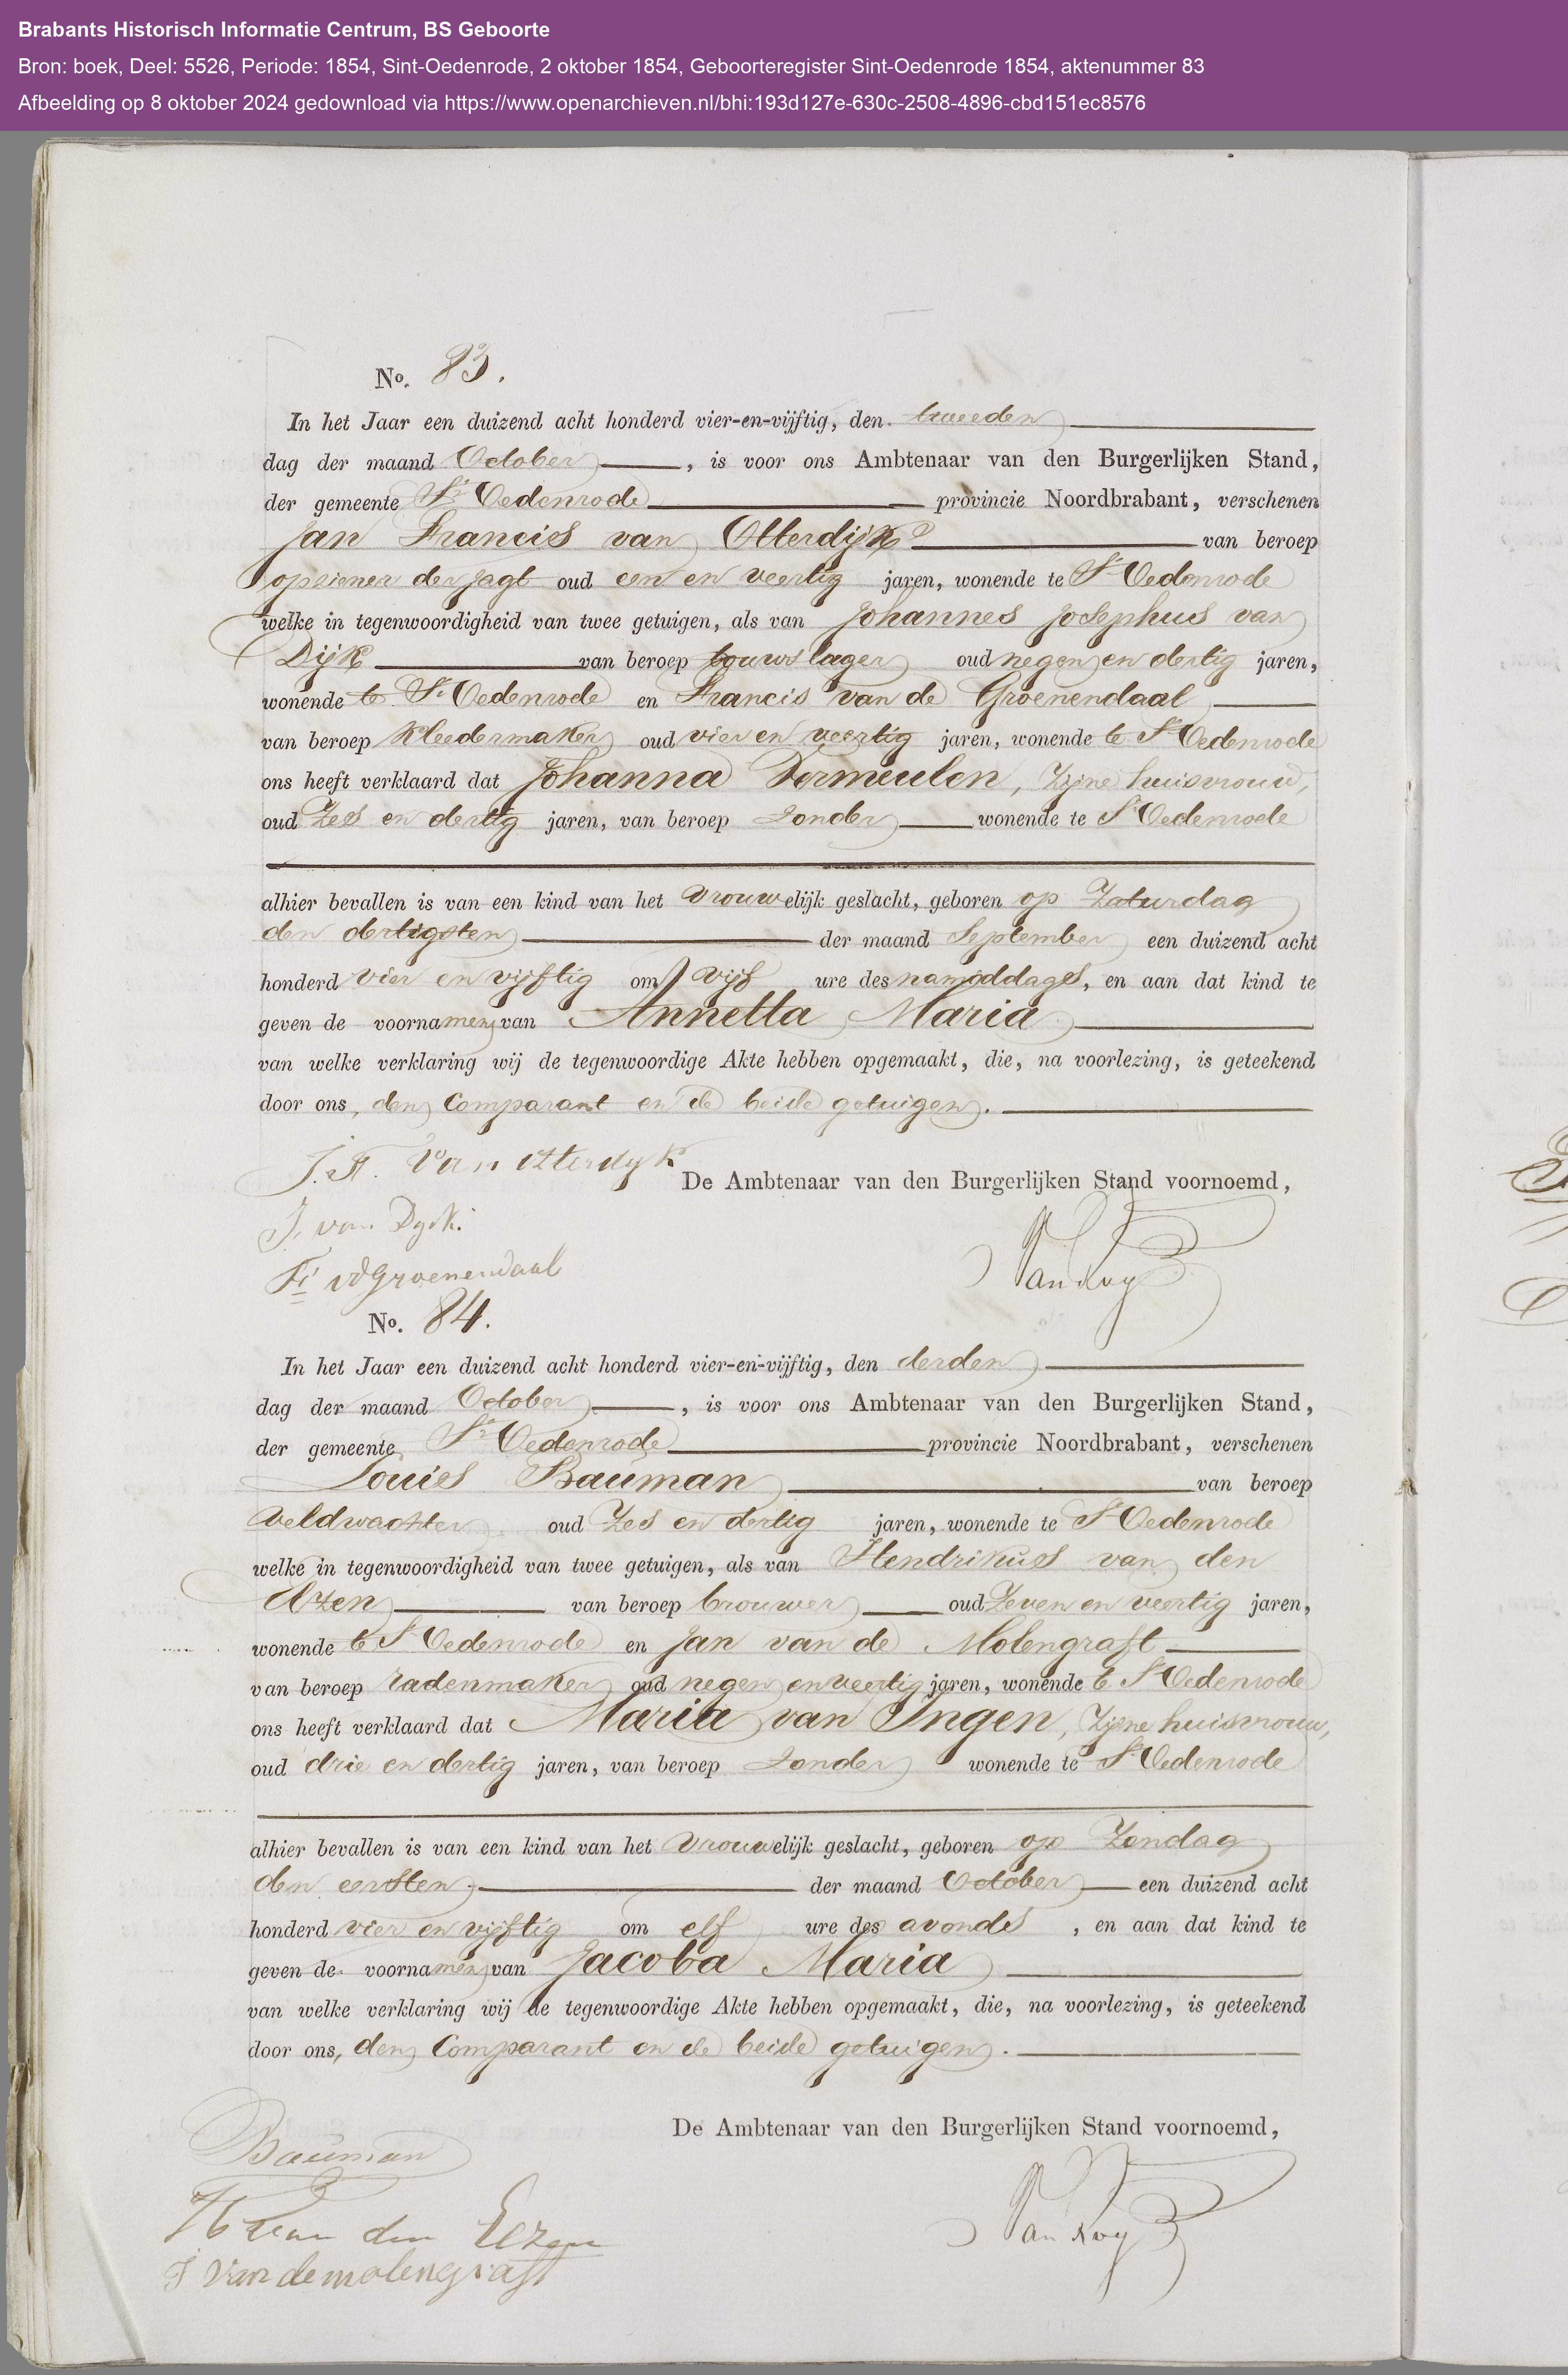 Brabants Historisch Informatie Centrum, BS Geboorte
Bron: boek, Deel: 5526, Periode: 1854, Sint-Oedenrode, 2 oktober 1854, Geboorteregister Sint-Oedenrode 1854, aktenummer 83
Afbeelding op 8 oktober 2024 gedownload via https://www.openarchieven.nl/bhi:193d127e-630c-2508-4896-cbd151ec8576
No. 83.
In het Jaar een duizend acht honderd vier-en-vijftig, den tweeden
dag der maand October, is voor ons Ambtenaar van den Burgerlijken Stand,
der gemeente St Oedenrode provincie Noordbrabant, verschenen
Jan Francis van Otterdijk van beroep
opziener der jagt oud een en veertig jaren, wonende te St Oedenrode
welke in tegenwoordigheid van twee getuigen, als van Johannes Josephus van
Dijk van beroep touwslager oud negen en dertig jaren,
wonende te St Oedenrode en Francis van de Groenendaal
van beroep kleedermaker oud vier en veertig jaren, wonende te St Oedenrode
ons heeft verklaard dat Johanna Vermeulen, zijne huisvrouw,
oud zes en dertig jaren, van beroep zonder wonende te St Oedenrode
alhier bevallen is van een kind van het vrouwelijk geslacht, geboren op Zaturdag
den dertigsten der maand September een duizend acht
honderd vier en vijftig om vijf ure des namiddags, en aan dat kind te
geven de voornamen van Annetta Maria
van welke verklaring wij de tegenwoordige Akte hebben opgemaakt, die, na voorlezing, is geteekend
door ons, den Comparant en de beide getuigen.
J. F. van Otterdyk
De Ambtenaar van den Burgerlijken Stand voornoemd,
J. van Dyck
Fs vd Groenendaal
No. 84.
In het Jaar een duizend acht honderd vier-en-vijftig, den derden
dag der maand October, is voor ons Ambtenaar van den Burgerlijken Stand,
der gemeente St Oedenrode provincie Noordbrabant, verschenen
Louis Bauman van beroep
veldwachter oud zes en dertig jaren, wonende te St Oedenrode
welke in tegenwoordigheid van twee getuigen, als van Hendrikus van den
van beroep brouwer oud zeven en veertig jaren,
wonende te St Oedenrode en Jan van de Molengraft
van beroep radenmaker oud negen en veertig jaren, wonende te St Oedenrode
ons heeft verklaard dat Maria van Ingen, zijne huisvrouw,
oud drie en dertig jaren, van beroep zonder wonende te St Oedenrode
alhier bevallen is van een kind van het vrouwelijk geslacht, geboren op Zondag
den eersten der maand October een duizend acht
honderd vier en vijftig om elf ure des avonds, en aan dat kind te
geven de voornamen van Jacoba Maria
van welke verklaring wij de tegenwoordige Akte hebben opgemaakt, die, na voorlezing, is geteekend
door ons, den Comparant en de beide getuigen.
De Ambtenaar van den Burgerlijken Stand voornoemd,
Bauman
H van den
J van demolengraft